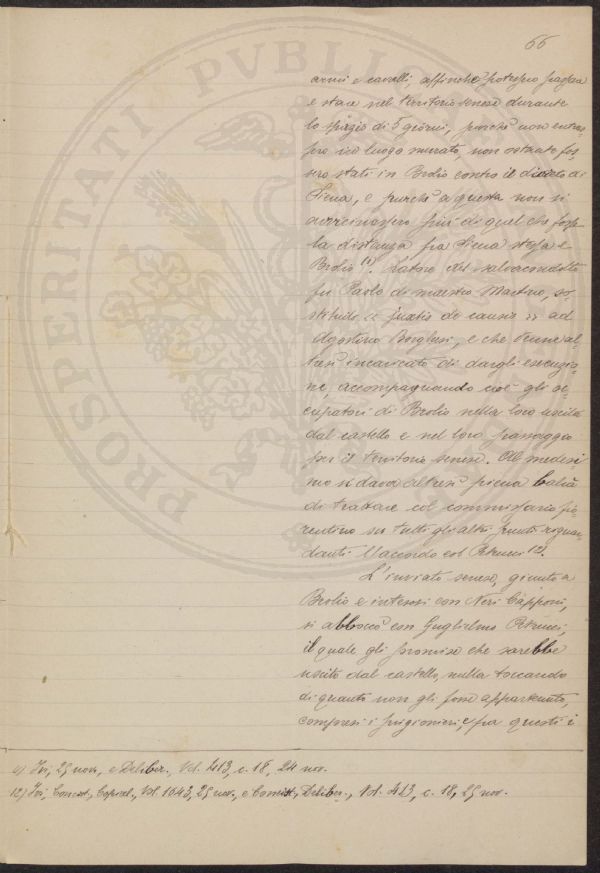 66
PROSPERITATI PVBLICAE
armi e cavalli, affinché potessero passare
e stare nel territorio senese durante
lo spazio di 5 giorni, purché non entras-
sero in luogo murato, non ostante fos-
sero stati in Brolio contro il divieto di
Siena, e purché a questa non si
avvicinassero più di quel che fosse
la distanza fra Siena stessa e
Brolio (1). Latore del salvacondotto
fu Paolo di maestro Martino, so-
stituito « justis de causis » ad
Agostino Borghesi, e che venne al-
tresì incaricato di dargli esecuzio-
ne, accompagnando cioè gli oc-
cupatori di Brolio nella loro uscita
dal castello e nel loro passaggio
per il territorio senese. Al medesi-
mo si dava altresì piena balìa
di trattare col commissario fio-
rentino su tutti gli altri punti riguar-
danti l'accordo col Petrucci (2).
L'inviato senese, giunto a
Brolio e intesosi con Neri Capponi,
si abboccò con Guglielmo Petrucci,
il quale gli promise che sarebbe
uscito dal castello, nulla toccando
di quanto non gli fosse appartenuto,
compresi i prigionieri, e fra questi i
(1) Ivi, 25 nov., e Deliber., Vol. 413, c. 18, 24 nov.
(2) Ivi, Concist., Copial., Vol. 1643, 25 nov., e Concist., Deliber., Vol. 413, c. 18, 25 nov.